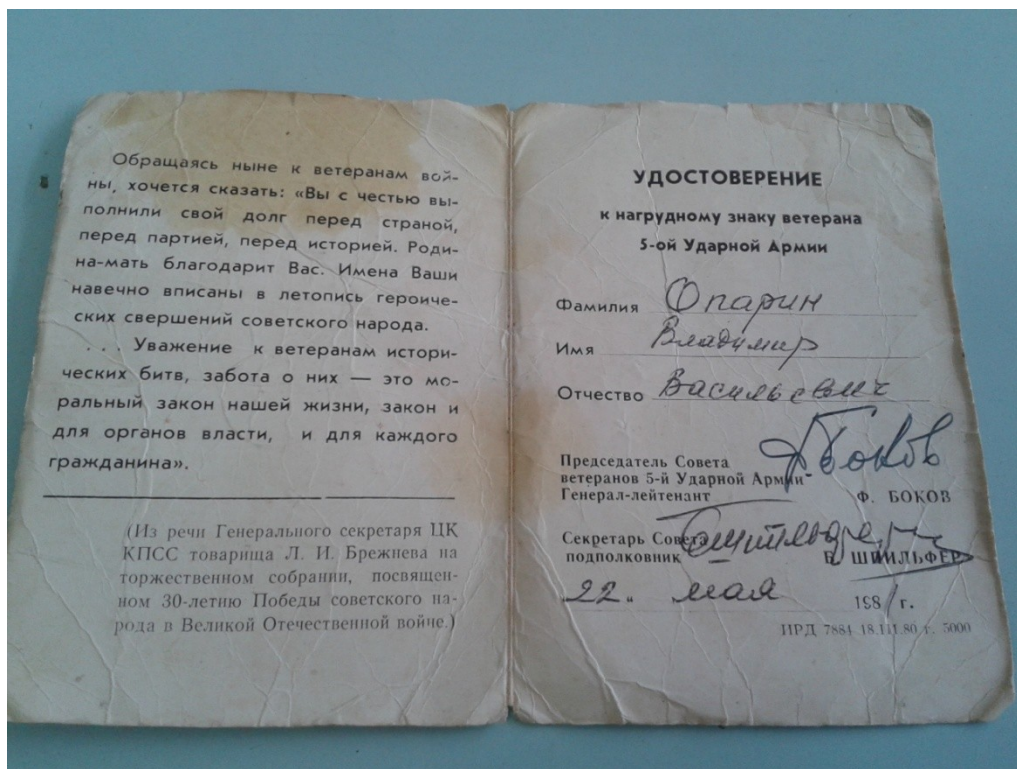 Обращаясь ныне к ветеранам вой-
ны, хочется сказать: «Вы с честью вы-
полнили свой долг перед страной,
перед партией, перед историей. Роди-
на-мать благодарит Вас. Имена Ваши
навечно вписаны в летопись героиче-
ских свершений советского народа.
. . . Уважение к ветеранам истори-
ческих битв, забота о них — это мо-
ральный закон нашей жизни, закон и
для органов власти, и для каждого
гражданина».
(Из речи Генерального секретаря ЦК
КПСС товарища Л. И. Брежнева на
торжественном собрании, посвящен-
ном 30-летию Победы советского на-
рода в Великой Отечественной войне.)
УДОСТОВЕРЕНИЕ
к нагрудному знаку ветерана
5-ой Ударной Армии
Фамилия Опарин
Имя Владимир
Отчество Васильевич
Председатель Совета
ветеранов 5-й Ударной Армии
Генерал-лейтенант Ф. БОКОВ
Боков
Секретарь Совета
подполковник
22. мая 1981 г.
ПРД 7884 18.111.80 г. 5000